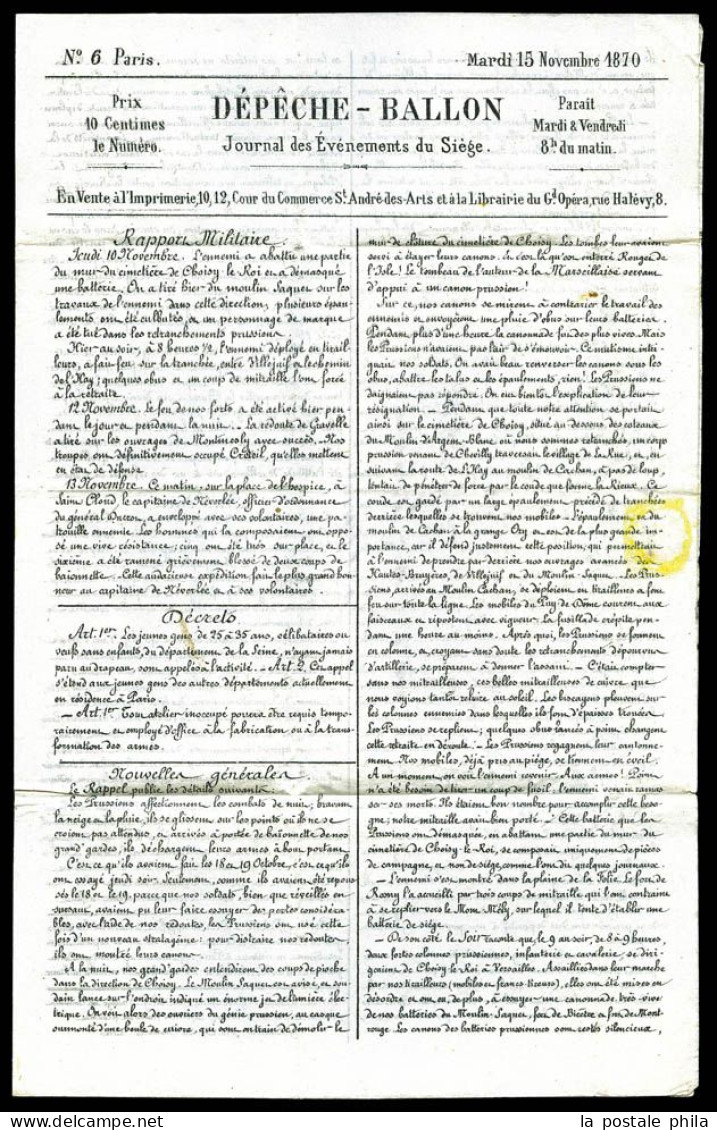 Nº 6 Paris. Mardi 15 Novembre 1870
Prix
10 Centimes
le Numéro.
DÉPÊCHE - BALLON
Journal des Événements du Siége.
Parait
Mardi & Vendredi
8h du matin.
En Vente à l'Imprimerie, 10, 12, Cour du Commerce St. André-des-Arts et à la Librairie du Gd Opéra, rue Halévy, 8.
Rapport Militaire.
Jeudi 10 Novembre. L'ennemi a abattu une partie
du mur du cimetière de Choisy le Roi et a démasqué
une batterie. On a tiré hier du moulin Saquet sur les
travaux de l'ennemi dans cette direction, plusieurs épau-
lements ont été culbutés et un personnage de marque
a été tué dans les retranchements prussiens.
Hier au soir, à 8 heures ½, l'ennemi déployé en tirail-
leurs, a fait feu sur la tranchée, entre Villejuif et le chemin
de l'Hay; quelques obus et un coup de mitraille l'ont forcé
à la retraite.
12 Novembre. Le feu de nos forts a été activé hier pen-
dant le jour et pendant la nuit. _ La redoute de Gravelle
a tiré sur les ouvrages de Montmesly avec succès. _ Nos
troupes ont définitivement occupé Créteil, qu'elles mettent
en état de défense.
13 Novembre. Ce matin, sur la place de l'hospice, à
Saint Cloud, le capitaine de Néverlée, officier d'ordonnance
du général Ducrot, a enveloppé avec ses volontaires, une pa-
trouille ennemie. Les hommes qui la composaient ont oppo-
sé une vive résistance; cinq ont été tués sur place, et le
sixième a été ramené grièvement blessé de deux coups de
baïonnette. _ Cette audacieuse expédition fait le plus grand hon-
neur au capitaine de Néverlée et à ses volontaires.
Décrets.
Art. 1er. Les jeunes gens de 25 à 35 ans, célibataires ou
veufs sans enfants, du département de la Seine, n'ayant jamais
paru au drapeau, sont appelés à l'activité. _ Art. 2. Cet appel
s'étend aux jeunes gens des autres départements actuellement
en résidence à Paris.
_ Art. 1er Tout atelier inoccupé pourra être requis tempo-
rairement et employé d'office à la fabrication ou à la trans-
formation des armes.
Nouvelles générales.
Le Rappel publie les détails suivants:
Les Prussiens affectionnent les combats de nuit; bravant
la neige ou la pluie, ils se glissent sur les points où ils ne se
croient pas attendus, et arrivés à portée de baïonnette de nos
grand'gardes, ils déchargent leurs armes à bout portant.
C'est ce qu'ils avaient fait les 18 et 19 Octobre, c'est ce qu'ils
ont essayé jeudi soir. Seulement, comme ils avaient été repous-
sés le 18 et le 19, parce que nos soldats, bien que réveillés en
sursaut, avaient pu leur faire essuyer des pertes considéra-
bles, avec l'aide de nos redoutes, les Prussiens ont usé cette
fois d'un nouveau stratagème: pour distraire nos redoutes,
ils ont montré leurs canons.
A la nuit, nos grand'gardes entendirent des coups de pioche
dans la direction de Choisy. Le Moulin Saquet est avisé, et sou-
dain lance sur l'endroit indiqué un énorme jet de lumière élec-
trique. On voit alors des ouvriers du génie prussien, au casque
surmonté d'une boule de cuivre, qui sont en train de démolir le
mur de clôture du cimetière de Choisy. Les tombes leur avaient
servi à étayer leurs canons. Et c'est là qu'est enterré Rouget de
l'Isle! Le tombeau de l'auteur de la Marseillaise servant
d'appui à un canon prussien!
Sur ce, nos canons se mirent à contrarier le travail des
ennemis et envoyèrent une pluie d'obus sur leurs batteries.
Pendant plus d'une heure la canonnade fut des plus vives. Mais
les Prussiens n'avaient pas l'air de s'émouvoir. Ce mutisme intri-
guait nos soldats. On avait beau renverser les canons sous les
obus, abattre les talus et les épaulements, rien! Les Prussiens ne
daignaient pas répondre. On eut bientôt l'explication de leur
résignation. _ Pendant que toute notre attention se portait
ainsi sur le cimetière de Choisy, situé au dessous des coteaux
du Moulin d'Argent-Blanc où nous sommes retranchés, un corps
prussien venant de Chevilly traversait le village de la Rue, et, en
suivant la route de l'Hay au moulin de Cachan, à pas de loup,
tentait de pénétrer de force par le coude que forme la Bièvre. Ce
coude est gardé par un large épaulement précédé de tranchées
derrière lesquelles se trouvent nos mobiles. _ L'épaulement va du
moulin de Cachan à la grange Ory et est de la plus grande im-
portance, car il défend justement cette position, qui permettrait
à l'ennemi de prendre par derrière nos ouvrages avancés des
Hautes-Bruyères, de Villejuif et du Moulin-Saquet. _ Les Prus-
siens, arrivés au Moulin Cachan, se déploient en tirailleurs et font
feu sur toute la ligne. Les mobiles du Puy de Dôme courent aux
faisceaux et ripostent avec vigueur. La fusillade crépite pen-
dant une heure au moins. Après quoi, les Prussiens se forment
en colonne, et, croyant sans doute les retranchements dépourvus
d'artillerie, se préparent à donner l'assaut. _ C'était compter
sans nos mitrailleuses, ces belles mitrailleuses de cuivre que
nous voyions tantôt reluire au soleil. Les biscayens pleuvent sur
les colonnes ennemies dans lesquelles ils font d'épaisses trouées.
Les Prussiens se replient; quelques obus lancés à point changent
cette retraite en déroute. Les Prussiens regagnent leur cantonne-
ment. Nos mobiles, déjà pris au piége, se tiennent en éveil.
A un moment, on voit l'ennemi revenir. Aux armes! Point
n'a été besoin de tirer un coup de fusil, l'ennemi venait ramas-
ser ses morts. Ils étaient bon nombre pour accomplir cette beso-
gne; notre mitraille avait bien porté. _ Cette batterie que les
Prussiens ont démasquée, en abattant une partie du mur du
cimetière de Choisy-le-Roi, se composait uniquement de pièces
de campagne, et non de siége, comme l'ont dit quelques journaux.
_ L'ennemi s'est montré dans la plaine de la Folie. Le fort de
Rosny l'a accueilli par trois coups de mitraille qui l'ont contraint
à se replier vers le Mont Mély, sur lequel il tente d'établir une
batterie de siége.
_ De son côté le Soir raconte que, le 9 au soir, de 8 à 9 heures,
deux fortes colonnes prussiennes, infanterie et cavalerie, se diri-
geaient de Choisy-le-Roi à Versailles. Assaillies dans leur marche
par nos tirailleurs (mobiles et francs-tireurs), elles ont été mises en
désordre et ont eu, de plus, à essuyer une canonnade très-vive
de nos batteries du Moulin-Saquet, fort de Bicêtre et fort de Mont-
rouge. Les canons des batteries prussiennes sont restés silencieux,
la postale phila